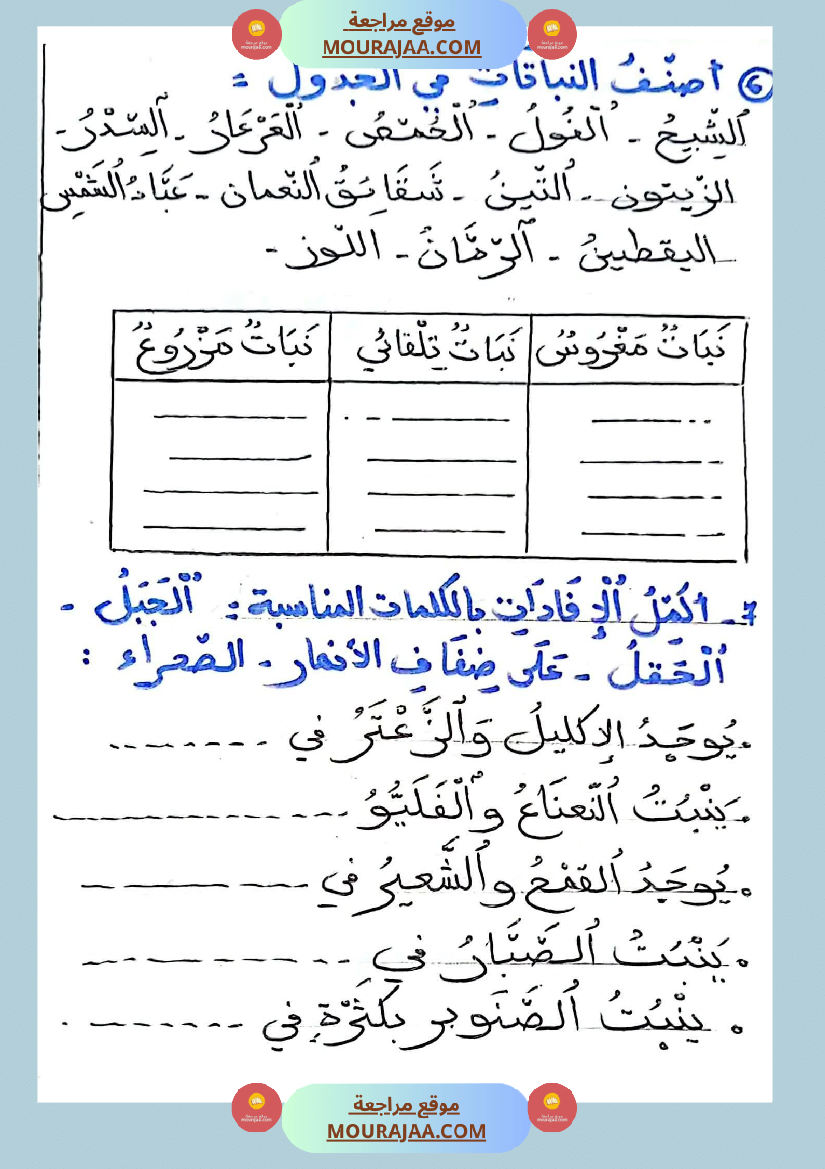 موقع مراجعة
MOURAJAA.COM
6 أصنّفُ النباتاتِ في الجدول :
اَلشِّيحُ - اُلفُولُ - اُلْحُمّصُ - اُلْعَرْعَارُ - اَلسِّدْرُ -
الزّيتون - اُلتّينُ - شَقَائِقُ اُلنّعمان - عَبَّادُ اُلشَّمْسِ
اليقطينُ - اَلرّمَّانُ - اللّوز -
نَبَاتٌ مَغْرُوسٌ نَبَاتٌ تِلْقائي نَبَاتٌ مَزْرُوعٌ
7 - أُكَمِّلُ اُلْإِفَادَاتِ بالكلمات المناسبة : اُلْجَبَلُ -
اُلْحَقلُ - عَلَى ضِفَافِ الأنهار - الصّحراء :
• يُوجَدُ الإكليلُ وَاَلزَّعْتَرُ في --------
• يَنْبُتُ اُلنّعنَاعُ واُلْفَلَيُّو --------
• يُوجَدُ اُلقمْحُ واُلشَّعيرُ في --------
• يَنْبُتُ اُلصَّبَّارُ في --------
• ينْبُتُ اُلصّنَوبر بكَثْرَةٍ في --------
موقع مراجعة
MOURAJAA.COM